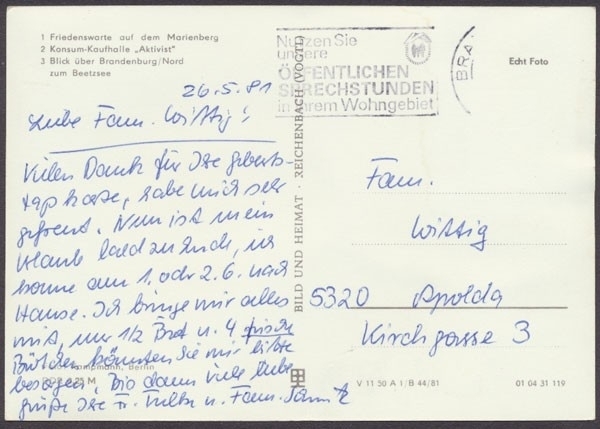 1 Friedenswarte auf dem Marienberg
2 Konsum-Kaufhalle „Aktivist"
3 Blick über Brandenburg/Nord
zum Beetzsee
26.5.81
Liebe Fam. Wittig!
Vielen Dank für Ihre Geburts-
tagskarte, habe mich sehr
gefreut. Nun ist mein
Urlaub bald zu Ende, ich
komme am 1. oder 2.6. nach
Hause. Ich bringe mir alles
mit, nur 1/2 Brot u. 4 frische
Brötchen könnten Sie mir bitte
besorgen. Bis dann viele liebe
Grüße Ihre Fr. u. Fam.
Berlin
M
BILD UND HEIMAT · REICHENBACH (VOGTL)
Nutzen Sie
unsere
ÖFFENTLICHEN
SPRECHSTUNDEN
in Ihrem Wohngebiet
BRA
Echt Foto
Fam.
Wittig
5320 Apolda
Kirchgasse 3
V 11 50 A 1/B 44/81
01 04 31 119